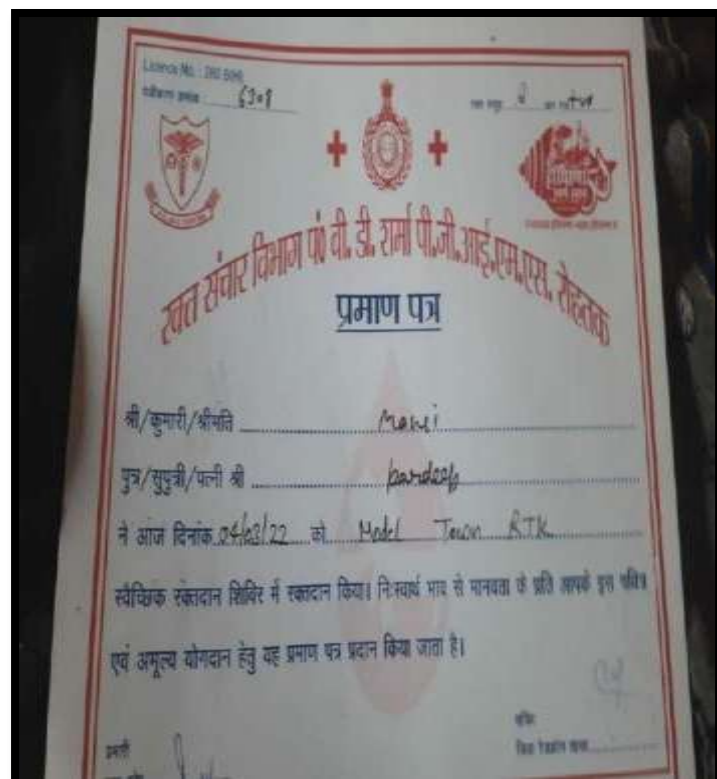 Licence No. :
6308
रक्त संचार विभाग पं० वी. डी. शर्मा पी.जी.आई.एम.एस. रोहतक
प्रमाण पत्र
श्री/कुमारी/श्रीमति
पुत्र/सुपुत्री/पत्नी श्री pardeep
ने आज दिनांक 04/03/22 को Model Town RTK
स्वैच्छिक रक्तदान शिविर में रक्तदान किया। निःस्वार्थ भाव से मानवता के प्रति आपके इस पवित्र
एवं अमूल्य योगदान हेतु यह प्रमाण पत्र प्रदान किया जाता है।
प्रभारी
सचिव